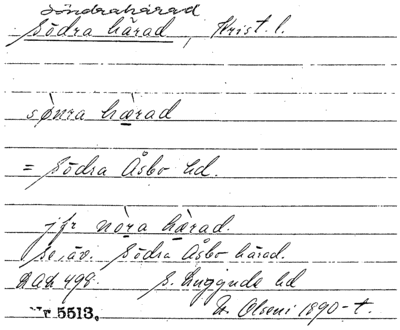 Söndrahärad
Södra härad, Krist. l.
sò̤nra hæ̀rad
= Södra Åsbo hd.
jfr nò̤ra hæ̀rad.
se äv. Södra Åsbo härad.
DAL 498. S. Luggude hd
Nr 5513. N. Olseni 1890-t.